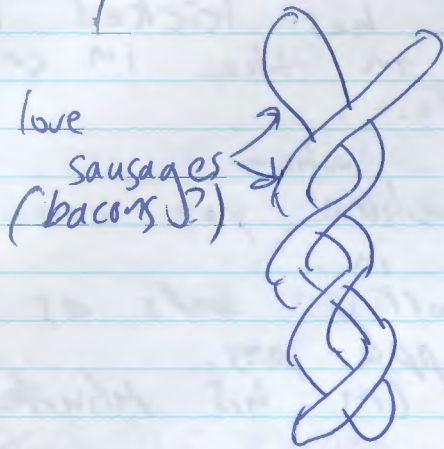 love
sausages
(bacons?)